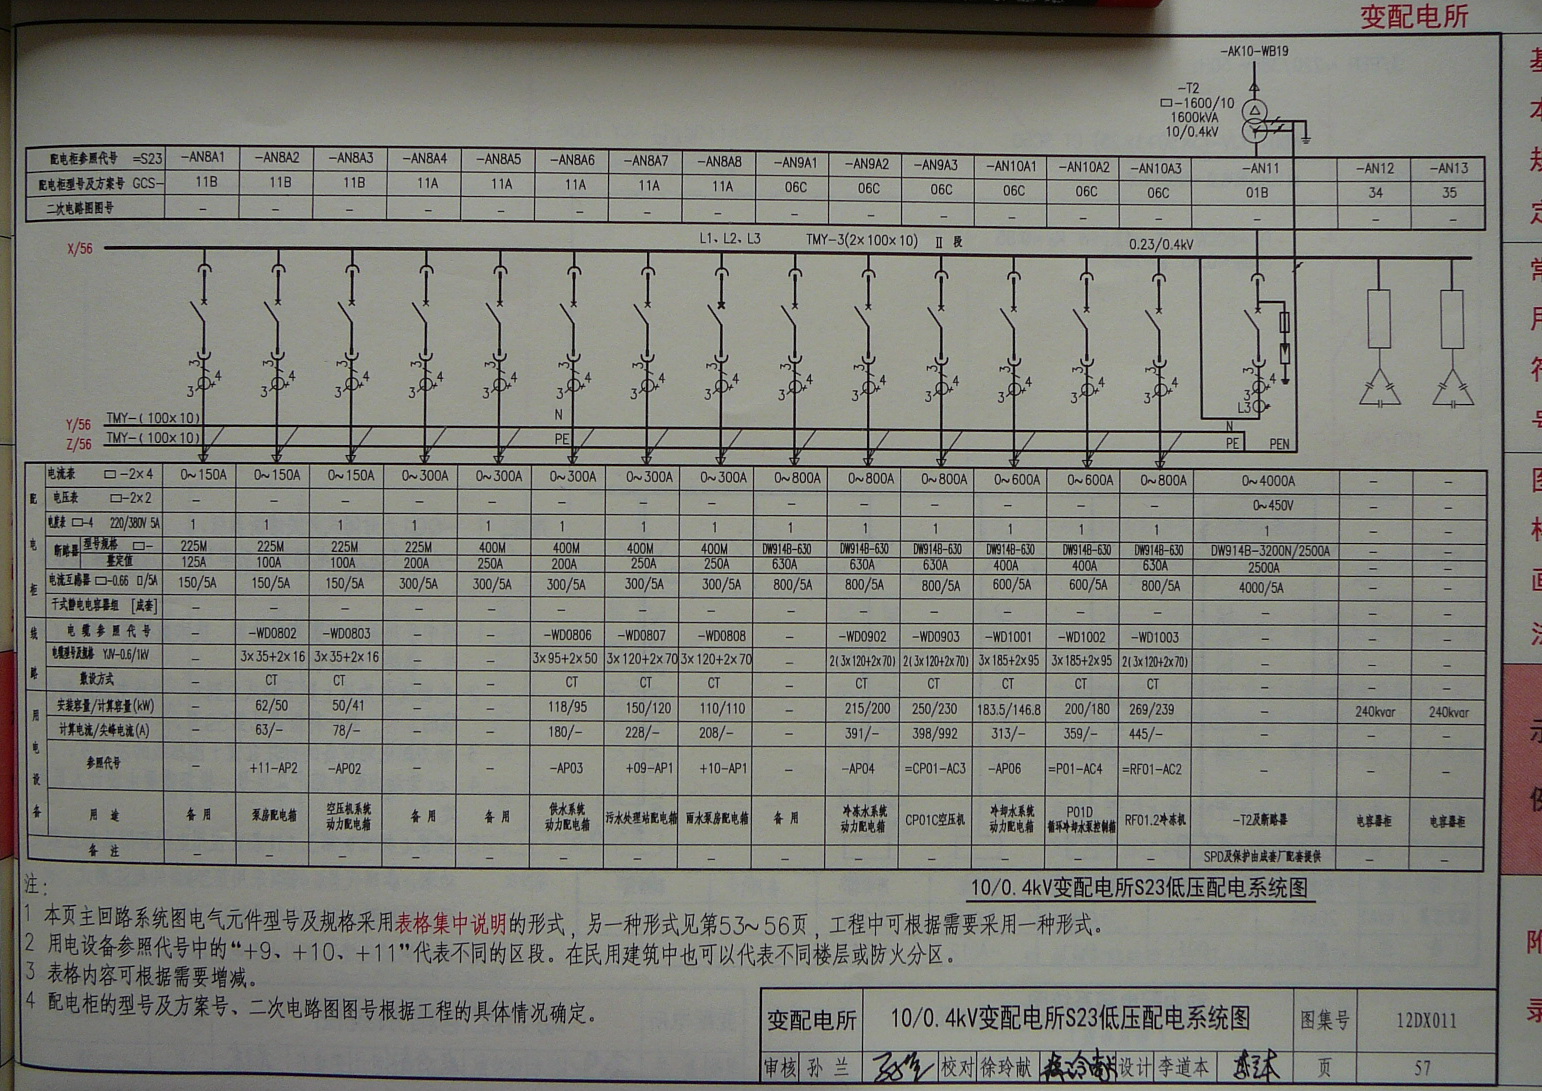 变配电所
-AK10-WB19
-T2
-1600/10
1600kVA
10/0.4kV
配电柜参照代号 =S23 -AN8A1 -AN8A2 -AN8A3 -AN8A4 -AN8A5 -AN8A6 -AN8A7 -AN8A8 -AN9A1 -AN9A2 -AN9A3 -AN10A1 -AN10A2 -AN10A3 -AN11 -AN12 -AN13
配电柜型号及方案号 GCS- 11B 11B 11B 11A 11A 11A 11A 11A 06C 06C 06C 06C 06C 06C 01B 34 35
二次电路图图号 - - - - - - - - - - - - - - - - -
X/56 L1、L2、L3 TMY-3(2×100×10) Ⅱ 段 0.23/0.4kV
3 3 3 3 3 3 3 3 3 3 3 3 3 3 3
3 4 3 4 3 4 3 4 3 4 3 4 3 4 3 4 3 4 3 4 3 4 3 4 3 4 3 4 3 4
L3
Y/56 TMY-(100×10) N N
Z/56 TMY-(100×10) PE PE PEN
配电柜
电流表 □-2×4 0~150A 0~150A 0~150A 0~300A 0~300A 0~300A 0~300A 0~300A 0~800A 0~800A 0~800A 0~600A 0~600A 0~800A 0~4000A - -
电压表 □-2×2 - - - - - - - - - - - - - - 0~450V - -
电度表 □-4 220/380V 5A 1 1 1 1 1 1 1 1 1 1 1 1 1 1 1 - -
断路器 型号规格 □- 225M 225M 225M 225M 400M 400M 400M 400M DW914B-630 DW914B-630 DW914B-630 DW914B-630 DW914B-630 DW914B-630 DW914B-3200N/2500A - -
整定值 125A 100A 100A 200A 250A 200A 250A 250A 630A 630A 630A 400A 400A 630A 2500A - -
电流互感器 □-0.66 □/5A 150/5A 150/5A 150/5A 300/5A 300/5A 300/5A 300/5A 300/5A 800/5A 800/5A 800/5A 600/5A 600/5A 800/5A 4000/5A - -
干式静电电容器组 [成套] - - - - - - - - - - - - - - - - -
线路
电缆参照代号 - -WD0802 -WD0803 - - -WD0806 -WD0807 -WD0808 - -WD0902 -WD0903 -WD1001 -WD1002 -WD1003 - - -
电缆型号及规格 YJV-0.6/1kV - 3×35+2×16 3×35+2×16 - - 3×95+2×50 3×120+2×70 3×120+2×70 - 2(3×120+2×70) 2(3×120+2×70) 3×185+2×95 3×185+2×95 2(3×120+2×70) - - -
敷设方式 - CT CT - - CT CT CT - CT CT CT CT CT - - -
用电设备
安装容量/计算容量(kW) - 62/50 50/41 - - 118/95 150/120 110/110 - 215/200 250/230 183.5/146.8 200/180 269/239 - 240kvar 240kvar
计算电流/尖峰电流(A) - 63/- 78/- - - 180/- 228/- 208/- - 391/- 398/992 313/- 359/- 445/- - - -
参照代号 - +11-AP2 -AP02 - - -AP03 +09-AP1 +10-AP1 - -AP04 =CP01-AC3 -AP06 =P01-AC4 =RF01-AC2 - - -
用途 备用 泵房配电箱 空压机系统动力配电箱 备用 备用 供水系统动力配电箱 污水处理站配电箱 雨水泵房配电箱 备用 冷冻水系统动力配电箱 CP01C空压机 冷却水系统动力配电箱 P01D循环冷却水泵控制箱 RF01.2冷冻机 -T2及断路器 电容器柜 电容器柜
备注 - - - - - - - - - - - - - - SPD及保护由成套厂配套提供 - -
10/0.4kV变配电所S23低压配电系统图
注:
1 本页主回路系统图电气元件型号及规格采用表格集中说明的形式，另一种形式见第53~56页，工程中可根据需要采用一种形式。
2 用电设备参照代号中的“+9、+10、+11”代表不同的区段。在民用建筑中也可以代表不同楼层或防火分区。
3 表格内容可根据需要增减。
4 配电柜的型号及方案号、二次电路图图号根据工程的具体情况确定。
变配电所 10/0.4kV变配电所S23低压配电系统图 图集号 12DX011
审核 孙兰 校对 徐玲献 设计 李道本 页 57
基本规定
常用符号
图样画法
示例
附录